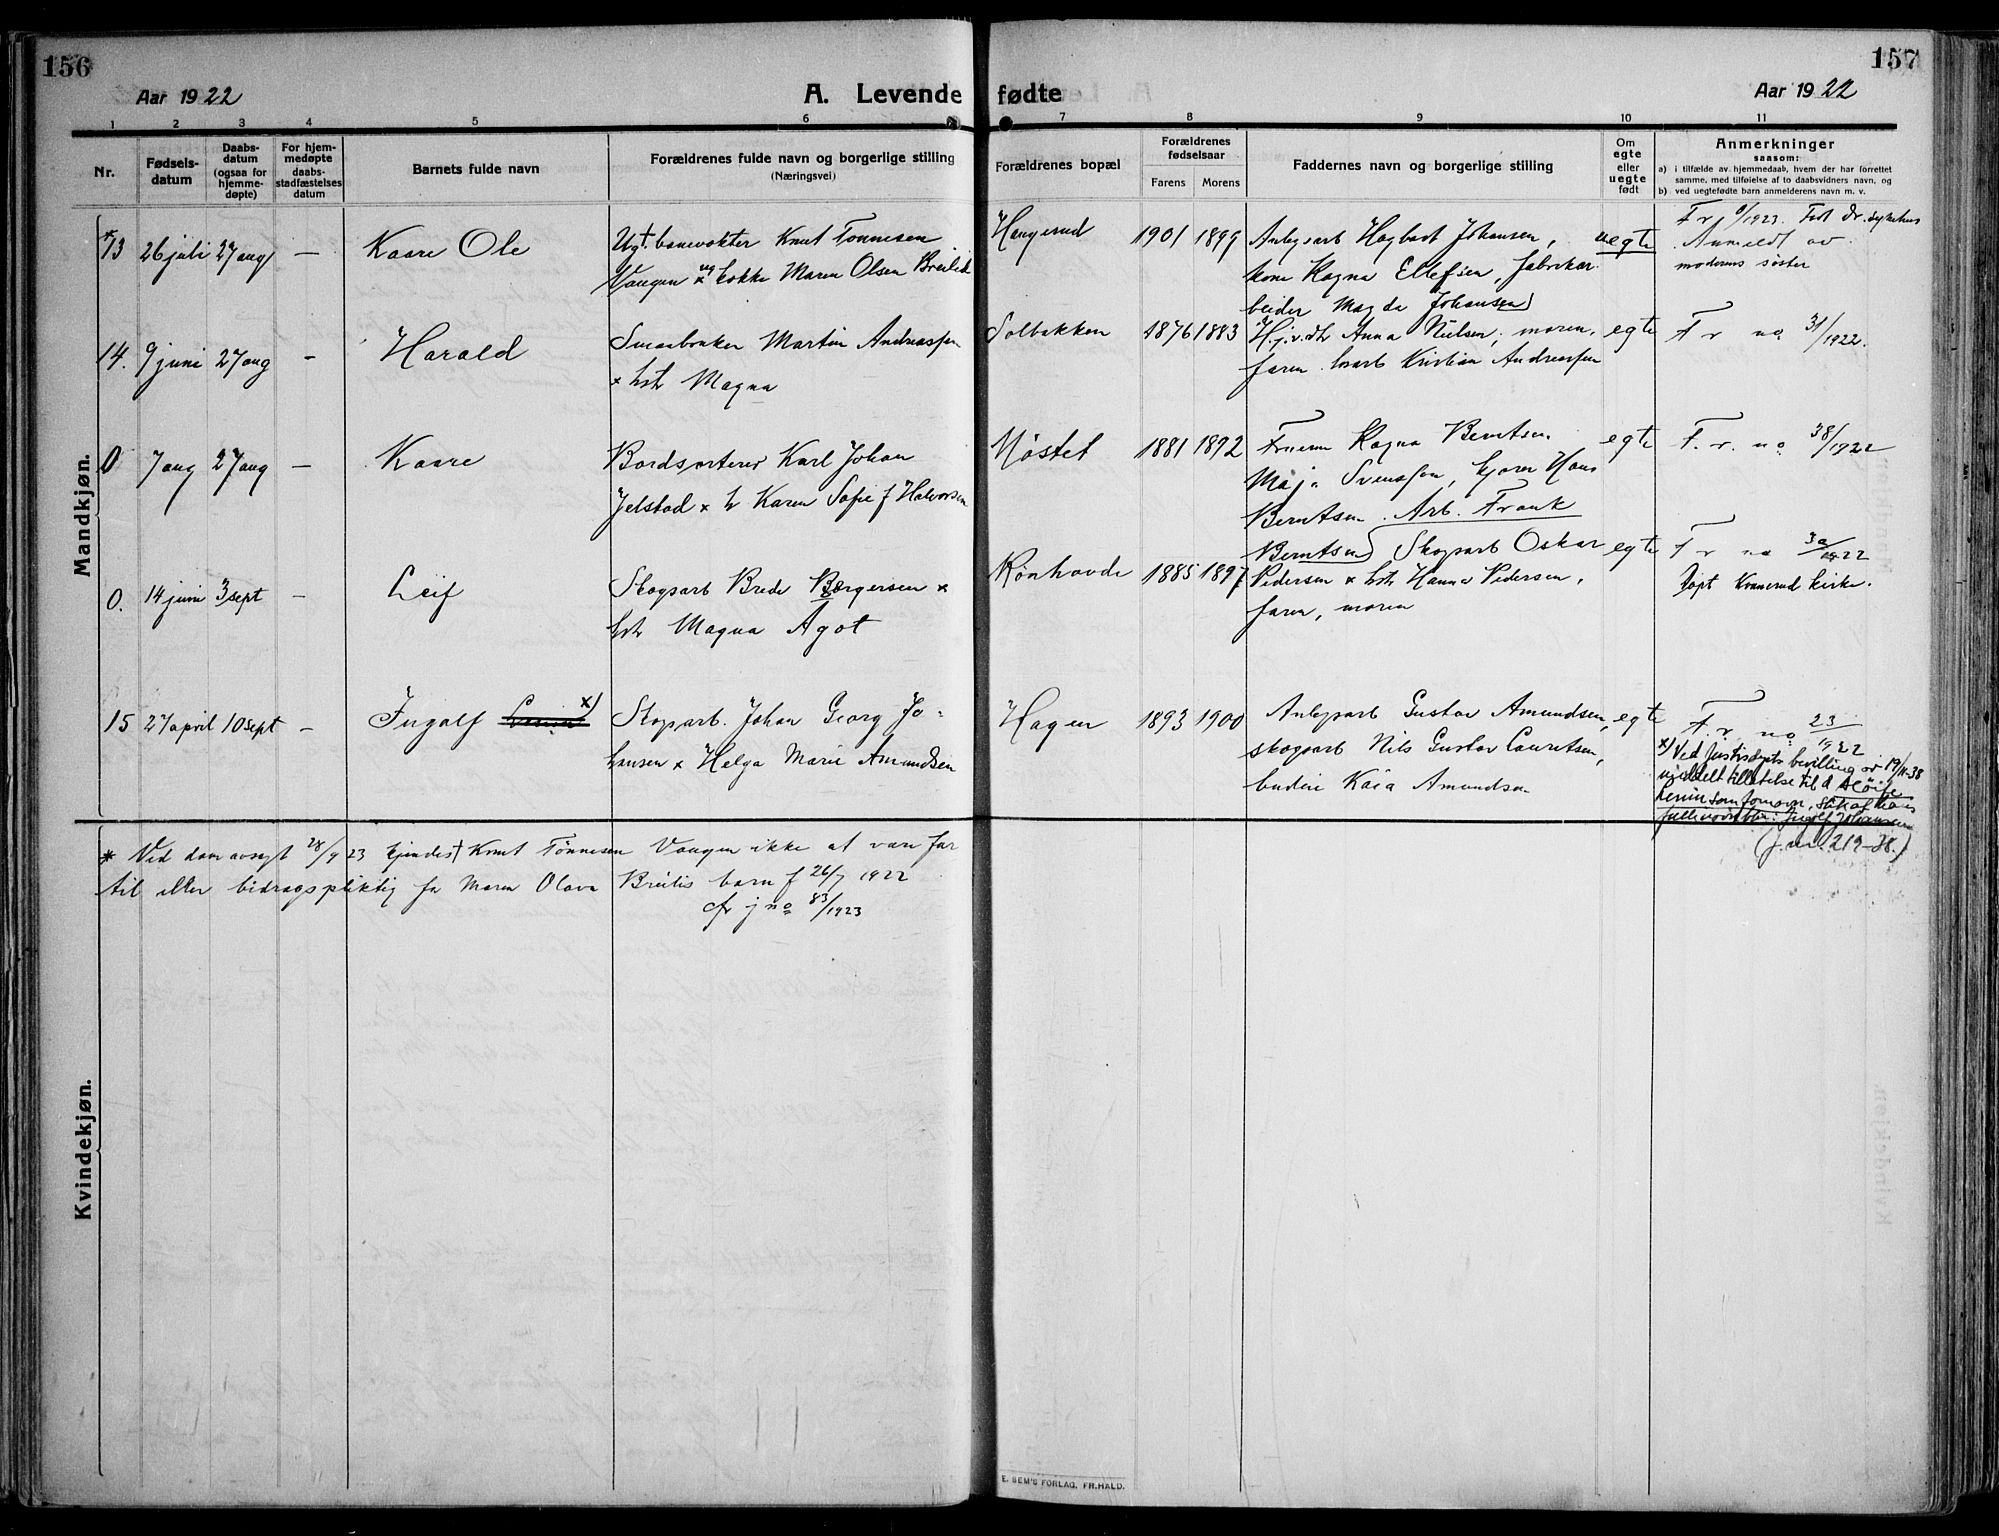 156
Aar 1922
A. Levende
1 2 3 4 5 6
Nr.
Fødsels-
datum
Daabs-
datum
(ogsaa for
hjemme-
døpte)
For hjem-
medøpte
daabs-
stadfæstelses
datum
Barnets fulde navn
Forældrenes fulde navn og borgerlige stilling
(Næringsvei)
Mandkjøn.
*13 26 juli 27 aug — Kaare Ole
Ugt. banevokter Knut Tønnesen
Vangen og kokke Maren Olsen Breilid
14. 9 juni 27 aug — Harald
Smaabruker Martin Andreassen
x hst Magna
0 7 aug 27 aug — Kaare
Bordsorterer Karl Johan
Jelstad x h Karen Sofie f Halvorsen
0. 14 juni 3 sept — Leif
Skogsarb Brede Børgersen x
hst Magna Agot
15 27 april 10 sept — Ingolf Lenin x)
Skogsarb. Johan Georg Jo-
hansen x Helga Marie Amundsen
* Ved dom avsagt 28/9 23 kjendes Knut Tønnesen Vangen ikke at være far
til eller bidragspliktig for Maren Olava Breilis barn f 26/7 1922
cfr j no 83/1923
Kvindekjøn.
157
fødte
Aar 1922
7 8 9 10 11
Forældrenes bopæl
Forældrenes
fødselsaar
Farens Morens
Faddernes navn og borgerlige stilling
Om
egte
eller
uegte
født
Anmerkninger
saasom:
a) i tilfælde av hjemmedaab, hvem der har forrettet
samme, med tilføielse af to daabsvidners navn, og
b) ved uegtefødte barn anmelderens navn m. v.
Haugerud 1901 1899
Anlegsarb Hagbart Johansen,
kone Ragna Ellefsen, fabrikar
beider Magda Johansen
uegte
F r 8/1923. Født Dr. sykehus
Anmeldt av
moderens søster
Solbakken 1876 1883
H.j.v.dt Anna Nielsen, moren,
faren. Kristian Andreassen
egte
F r no 31/1922.
Møstet 1881 1892
Fruerne Ragna Berntsen
Maja Svensson, kjører Hans
Berntsen. Arb. Frank
Berntsen
egte
F. r. no 38/1922
Rønhovde 1885 1897
Skogsarb Oskar
Pedersen x hst Hanna Pedersen,
faren, moren
egte
F r no 30/1922
Døpt Konnerud kirke.
Hagen 1893 1900
Anlegsarb Gustav Amundsen,
skogsarb Nils Gustav Lauritsen,
budeie Kaia Amundsen
egte
F. r. no 23/1922
x) Ved Justisdepts bevilling av 19/11-38
meddelt tillatelse til å sløife
Lenin som fornavn, slik at hans
fulle navn blir: Ingolf Johansen
(j.nr. 219-38.)
E. SEM'S FORLAG, FR.HALD.